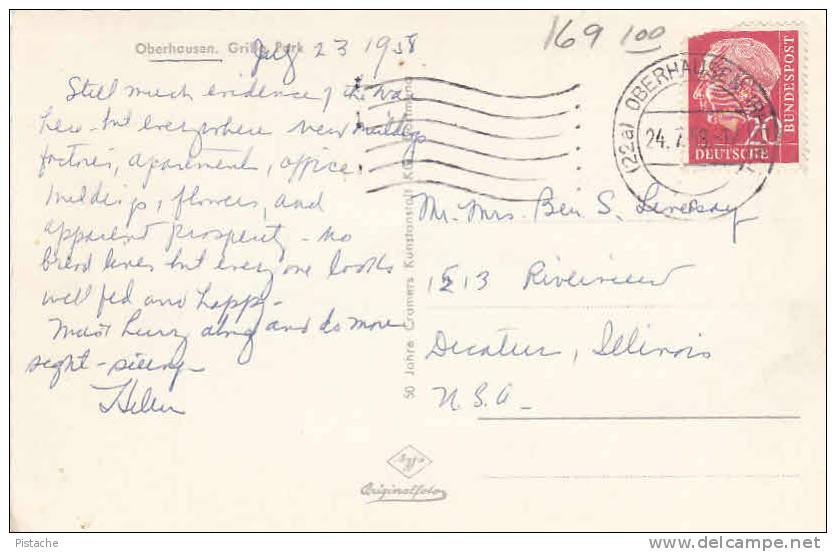 Oberhausen. Grillo Park
169 100
July 23 1958
Still much evidence of the war
here - but everywhere new buildings
factories, apartments, office
buildings, flowers, and
apparent prosperity - no
bread lines but every one looks
well fed and happy -
Must hurry along and do more
sight-seeing -
Helen
50 Jahre Cramers Kunstanstalt K.G., Dortmund
(22a) OBERHAUSEN
24.7.58
20
DEUTSCHE
BUNDESPOST
Mr. Mrs. Ben S. Livesay
1513 Riverview
Decatur, Illinois
U.S.A.
Agfa
Originalfoto
Pistache
www.delcampe.net